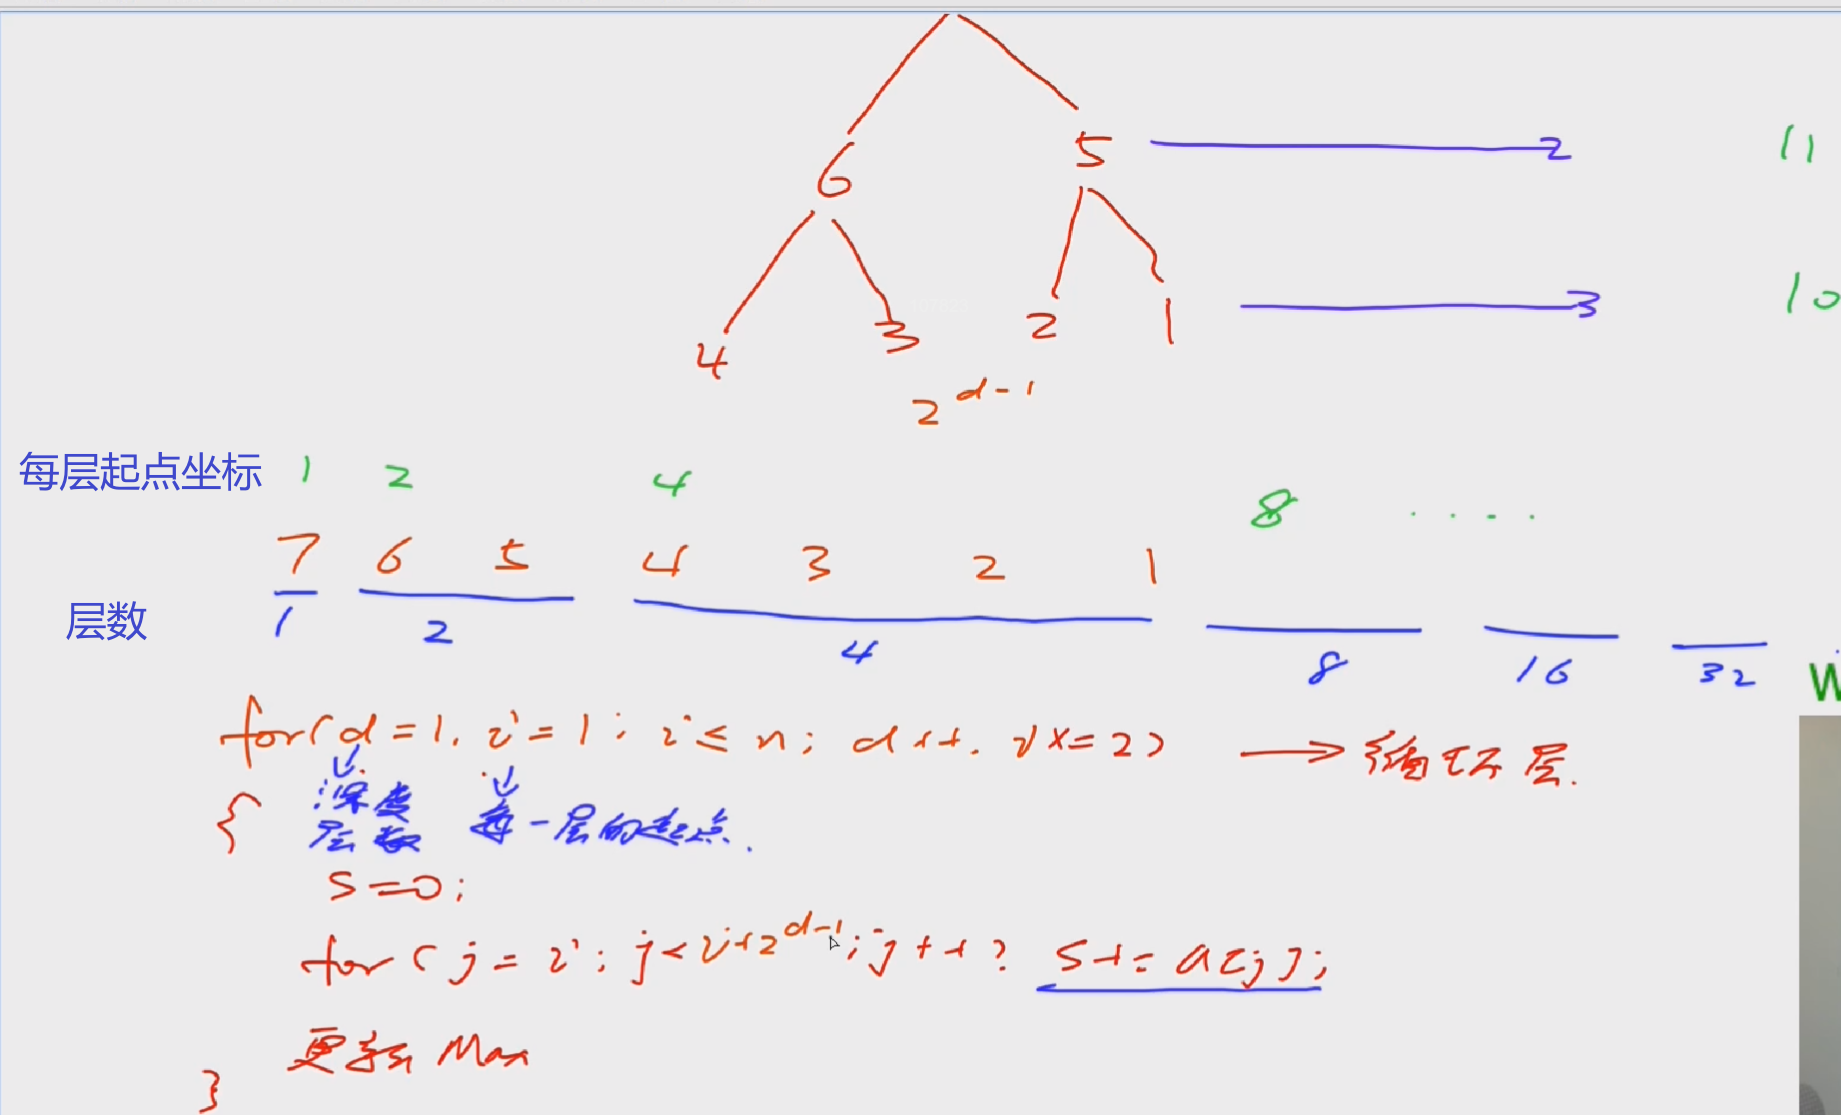 5 2 11
6
3 10
4 3 2 1
2^{d-1}
每层起点坐标 1 2 4 8 ....
7 6 5 4 3 2 1
层数 1 2 4 8 16 32
W
for(d=1, i=1; i≤n; d++, i×=2) → 编历层.
{ 深度 每一层的起点.
层数
s=0;
for(j=i; j<i+2^{d-1}; j++) s+=a[j];
更新 Max
}